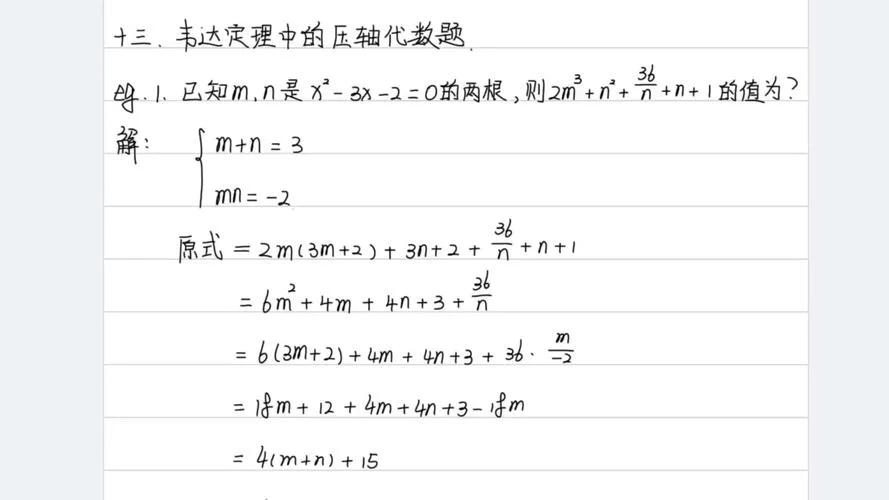 十三. 韦达定理中的压轴代数题.
eg.1. 已知m,n是x²-3x-2=0的两根,则2m³+n²+36/n+n+1的值为?
解: { m+n=3
mn=-2
原式=2m(3m+2)+3n+2+36/n+n+1
=6m²+4m+4n+3+36/n
=6(3m+2)+4m+4n+3+36·m/-2
=18m+12+4m+4n+3-18m
=4(m+n)+15